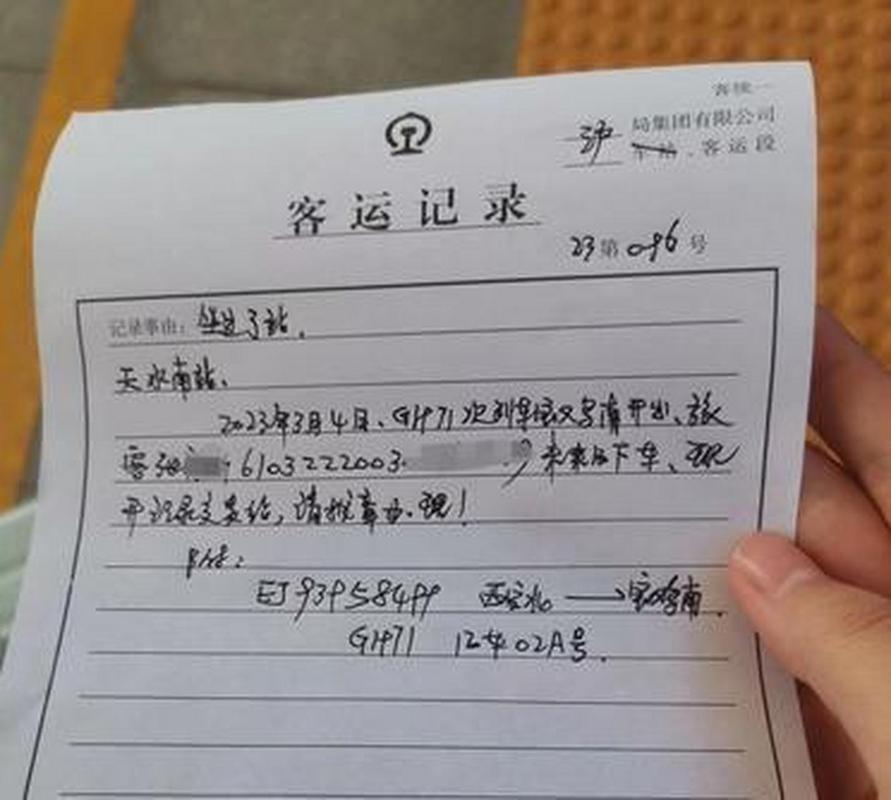 客统一
沪 局集团有限公司
车站、客运段
客运记录
23 第 096 号
记录事由：坐过了站.
天水南站、
2023年3月4日、G1971次列车宝鸡南开出、旅
客 6103222003 ）未来及下车、现
开记录交贵站，请按章办理！
附：
EJ93958499 西安北 → 宝鸡南.
G1971 12车02A号.